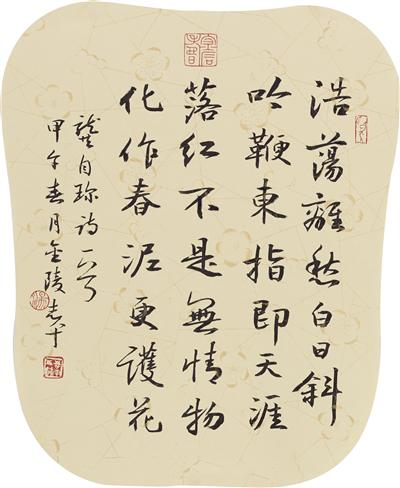 浩荡離愁白日斜
吟鞭東指即天涯
落红不是無情物
化作春泥更護花
龚自珍诗一首
甲午春月金陵志平